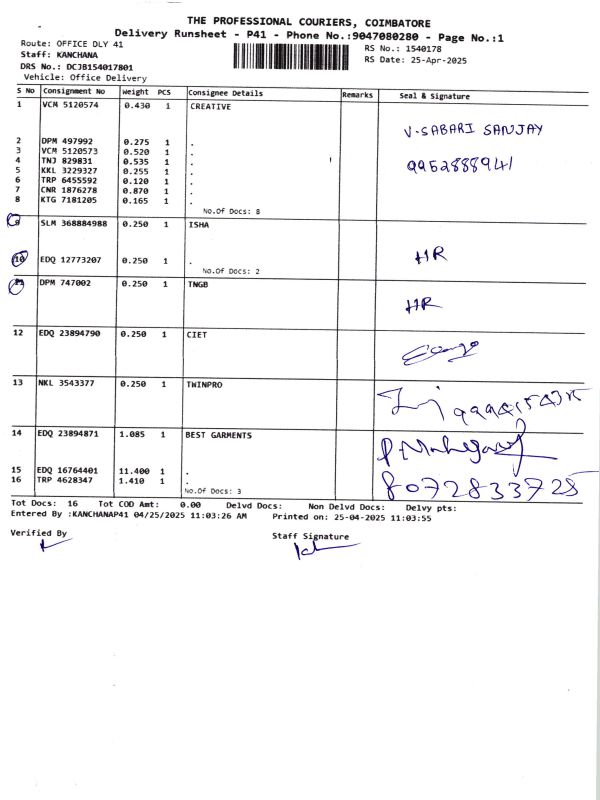 THE PROFESSIONAL COURIERS, COIMBATORE
Delivery Runsheet - P41 - Phone No.:9047080280 - Page No.:1
Route: OFFICE DLY 41
RS No.: 1540178
Staff: KANCHANA
RS Date: 25-Apr-2025
DRS No.: DCJB154017801
Vehicle: Office Delivery
S No Consignment No Weight PCS Consignee Details Remarks Seal & Signature
1 VCM 5120574 0.430 1 CREATIVE
V.SABARI SANJAY
2 DPM 497992 0.275 1 .
3 VCM 5120573 0.520 1 .
4 TNJ 829831 0.535 1 .
9952888941
5 KKL 3229327 0.255 1 .
6 TRP 6455592 0.120 1 .
7 CNR 1876278 0.870 1 .
8 KTG 7181205 0.165 1 .
No.Of Docs: 8
9 SLM 368884988 0.250 1 ISHA
HR
10 EDQ 12773207 0.250 1 .
No.Of Docs: 2
11 DPM 747002 0.250 1 TNGB
HR
12 EDQ 23894790 0.250 1 CIET
13 NKL 3543377 0.250 1 TWINPRO
14 EDQ 23894871 1.085 1 BEST GARMENTS
15 EDQ 16764401 11.400 1 .
16 TRP 4628347 1.410 1 .
8072833725
No.Of Docs: 3
Tot Docs: 16 Tot COD Amt: 0.00 Delvd Docs: Non Delvd Docs: Delvy pts:
Entered By :KANCHANAP41 04/25/2025 11:03:26 AM Printed on: 25-04-2025 11:03:55
Verified By
Staff Signature